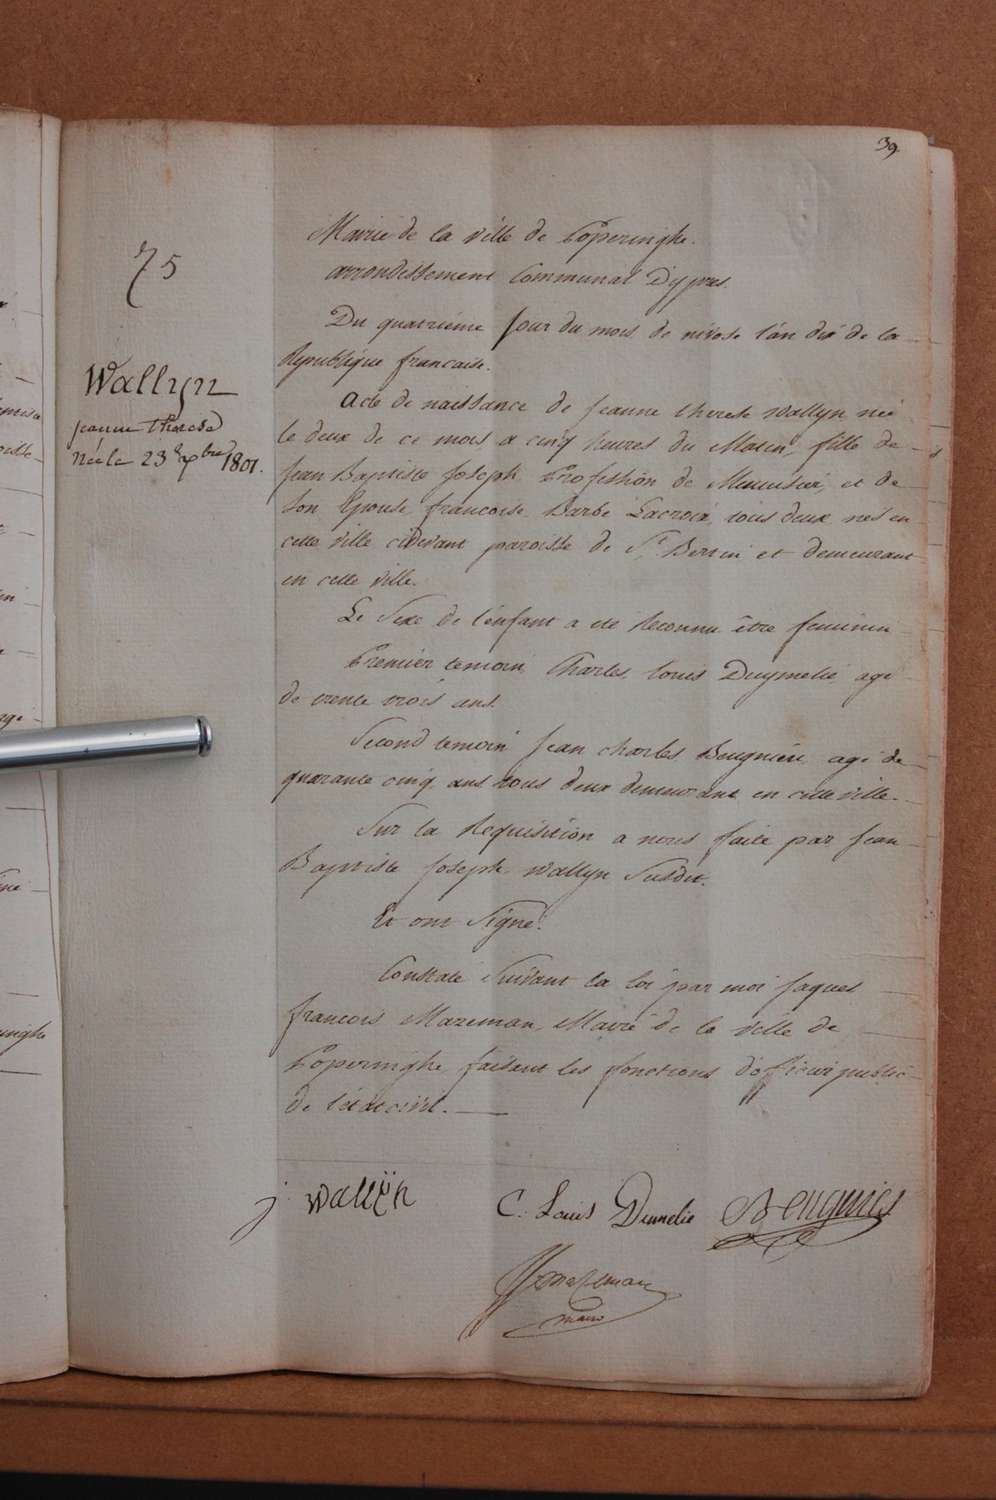 39.
75
Wallyn
jeanne therese
Née le 23 Xbre 1801.
Mairie de la ville de Poperinghe.
arrondissement Communal d'ypres.
Du quatrieme jour du mois de nivose l'an dix de la
Republique francaise.
Acte de naissance de jeanne therese Wallyn née
le deux de ce mois, a cinq heures du Matin, fille de
Jean Baptiste Joseph, Profession de Menuisier, et de
son Epouse francoise Barbe Lacroix, tous deux nés en
cette ville cidevant paroisse de St Bertin et demeurant
en cette ville.
Le Sexe de l'enfant a eté Reconnu être feminin
Premier temoin, Charles Louis agé
de trente trois ans.
Second temoin Jean Charles agé de
quarante cinq ans tous deux demeurant en cette ville.
Sur la Requisition a nous faite par Jean
Baptiste Joseph Wallyn Susdit.
Et ont Signé.
Constaté Suivant la loi par moi Jaques
francois Mazeman, Maire de la ville de
Poperinghe, faisant les fonctions d'officier public
de l'état civil.
j Wallÿn
C. Louis
Mazeman
maire